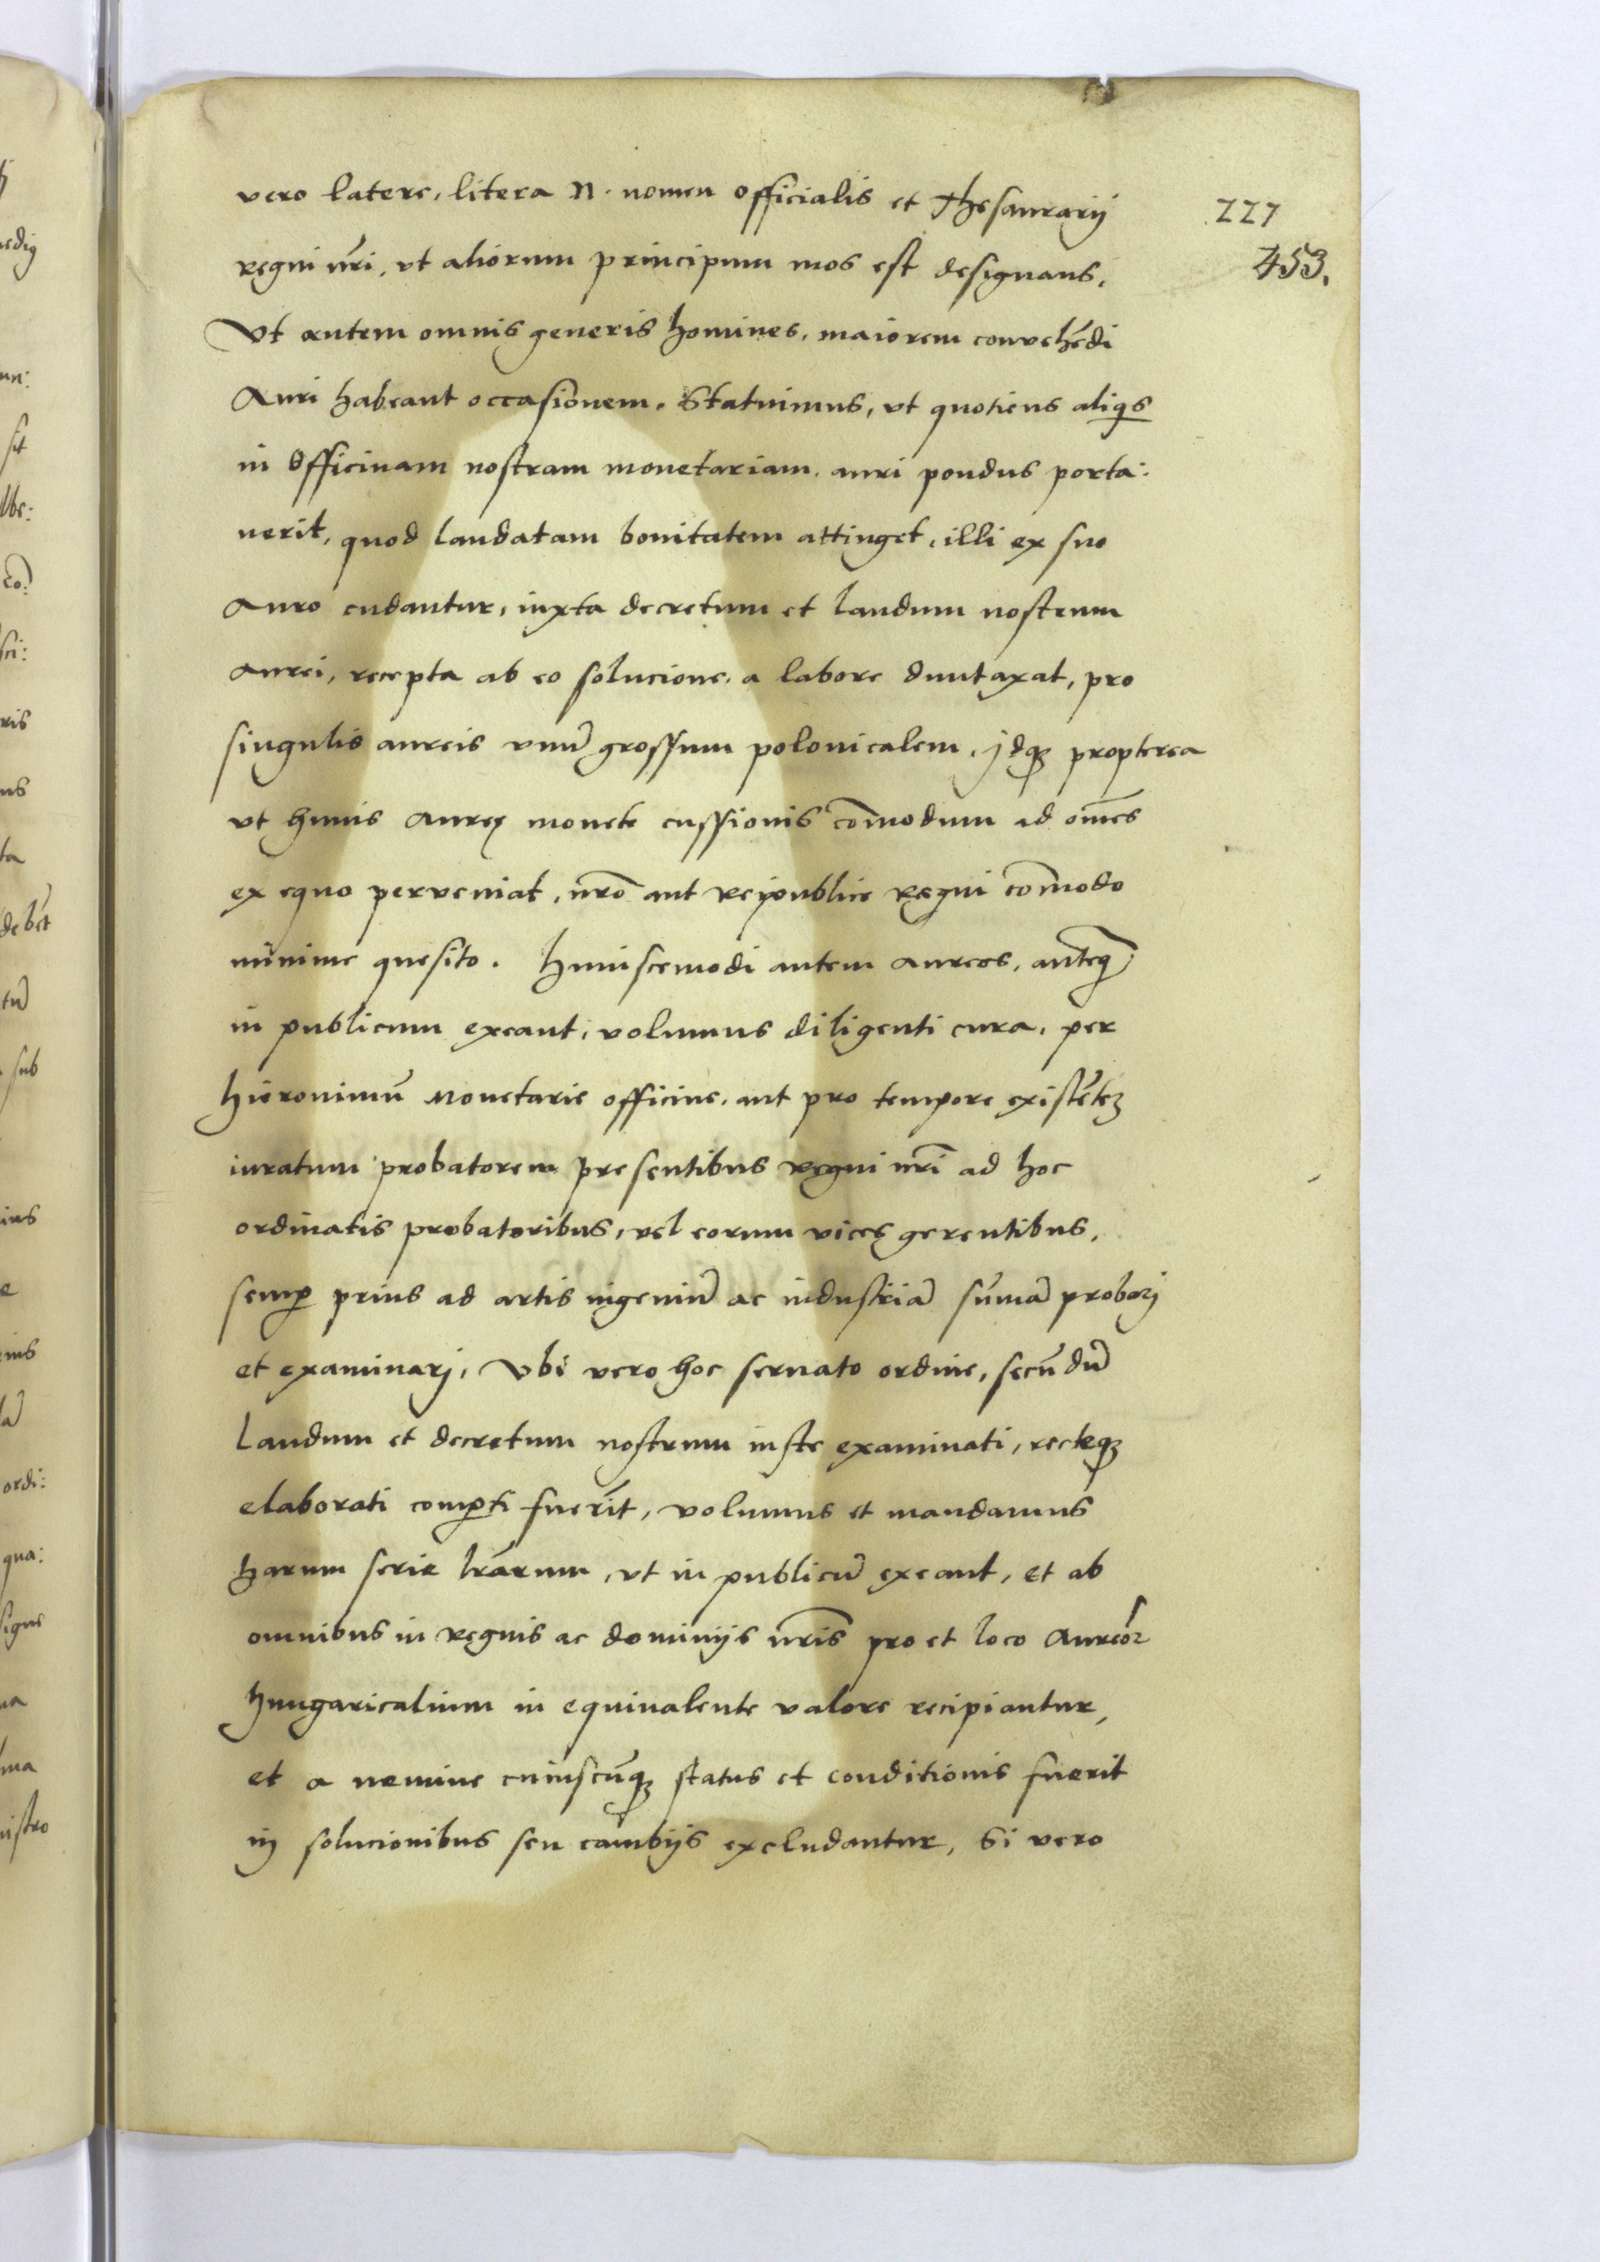 vero latere, litera N. nomen officialis et Thesaurarij
227
regni nr̃i, ut aliorum principum mos est designans.
453.
Vt autem omnis generis homines, maiorem convehẽdi
Auri habeant occasionem. Statuimus, vt quotiens aliqs
in Officinam nostram monetariam auri pondus porta:
uerit, quod laudatam bonitatem attinget, illi ex suo
Auro cudantur, iuxta decretum et laudum nostrum
Aurei, recepta ab eo solucione, a labore duntaxat, pro
singulis aureis vnũ grossum polonicalem, jdqȝ propterea
vt huius Aureę monete cussionis com̃odum ad om̃es
ex equo perveniat, nr̃o aut reipublice Regni com̃odo
minime quesito. Huiuscemodi autem aureos, anteq̃
in publicum exeant, volumus diligenti cura, per
Hieronimũ monetarie officine, aut pro tempore existẽteȝ
iuratum probatorem presentibus regni nr̃i ad hoc
ordinatis probatoribus, vel eorum vices gerentibus,
semꝑ prius ad artis ingeniũ ac industriã sum̃ã probarj
et examinarj, Vbi vero hoc seruato ordine, secũdũ
laudum et decretum nostrum iuste examinati, recteqȝ
elaborati comꝑti fuerĩt, volumus et mandamus
harum serie lr̃arum, vt in publicũ exeant, et ab
omnibus in regnis ac dominijs nr̃is pro et loco Aureoꝝ
hungaricalium in equiualente valore recipiantur,
et a nemine cuiuscũqȝ status et conditionis fuerit
in solucionibus seu cambijs excludantur, Si vero